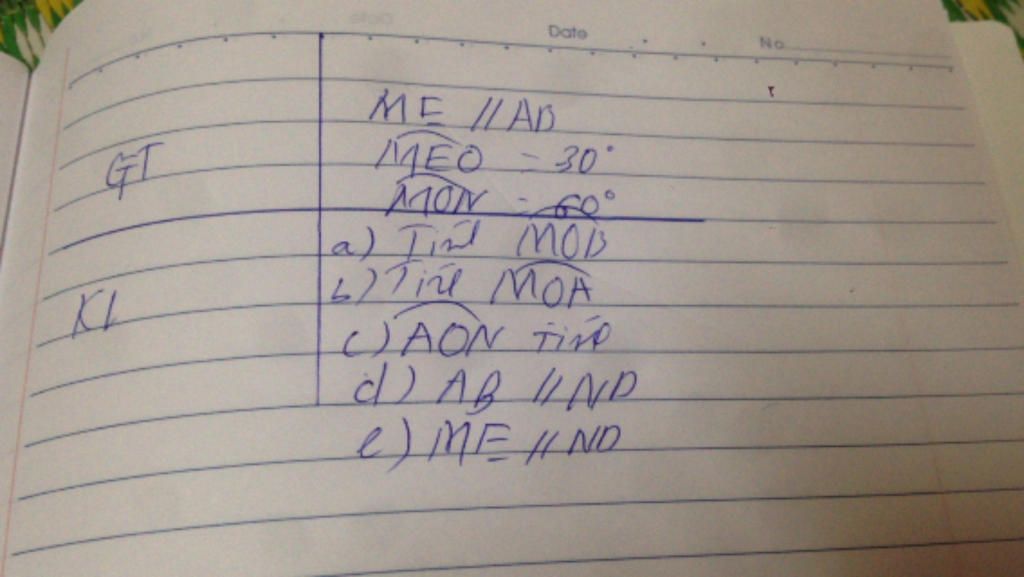 Date No
ME // AB
GT MEO = 30°
MON = 60°
a) Tính MOB
b) Tính MOA
KL
c) AON Tính
d) AB // ND
e) ME // ND